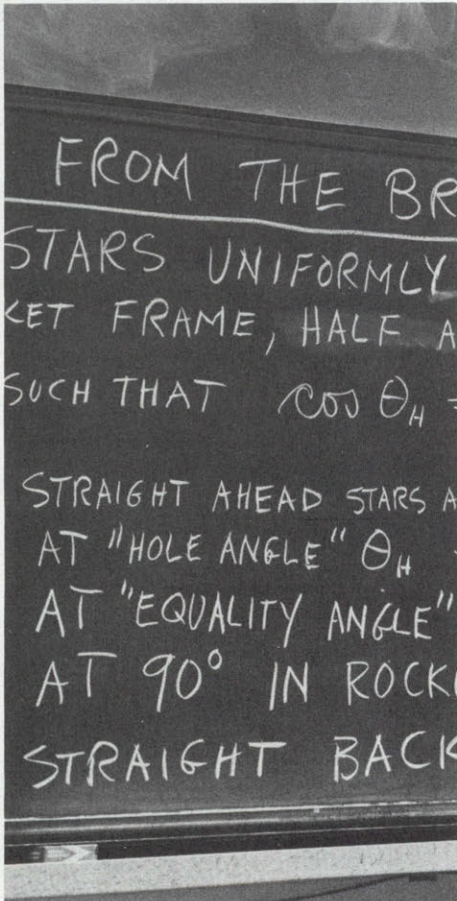 FROM THE BR
STARS UNIFORMLY
KET FRAME, HALF A
SUCH THAT cos θH =
STRAIGHT AHEAD STARS A
AT "HOLE ANGLE" θH
AT "EQUALITY ANGLE"
AT 90° IN ROCK
STRAIGHT BACK